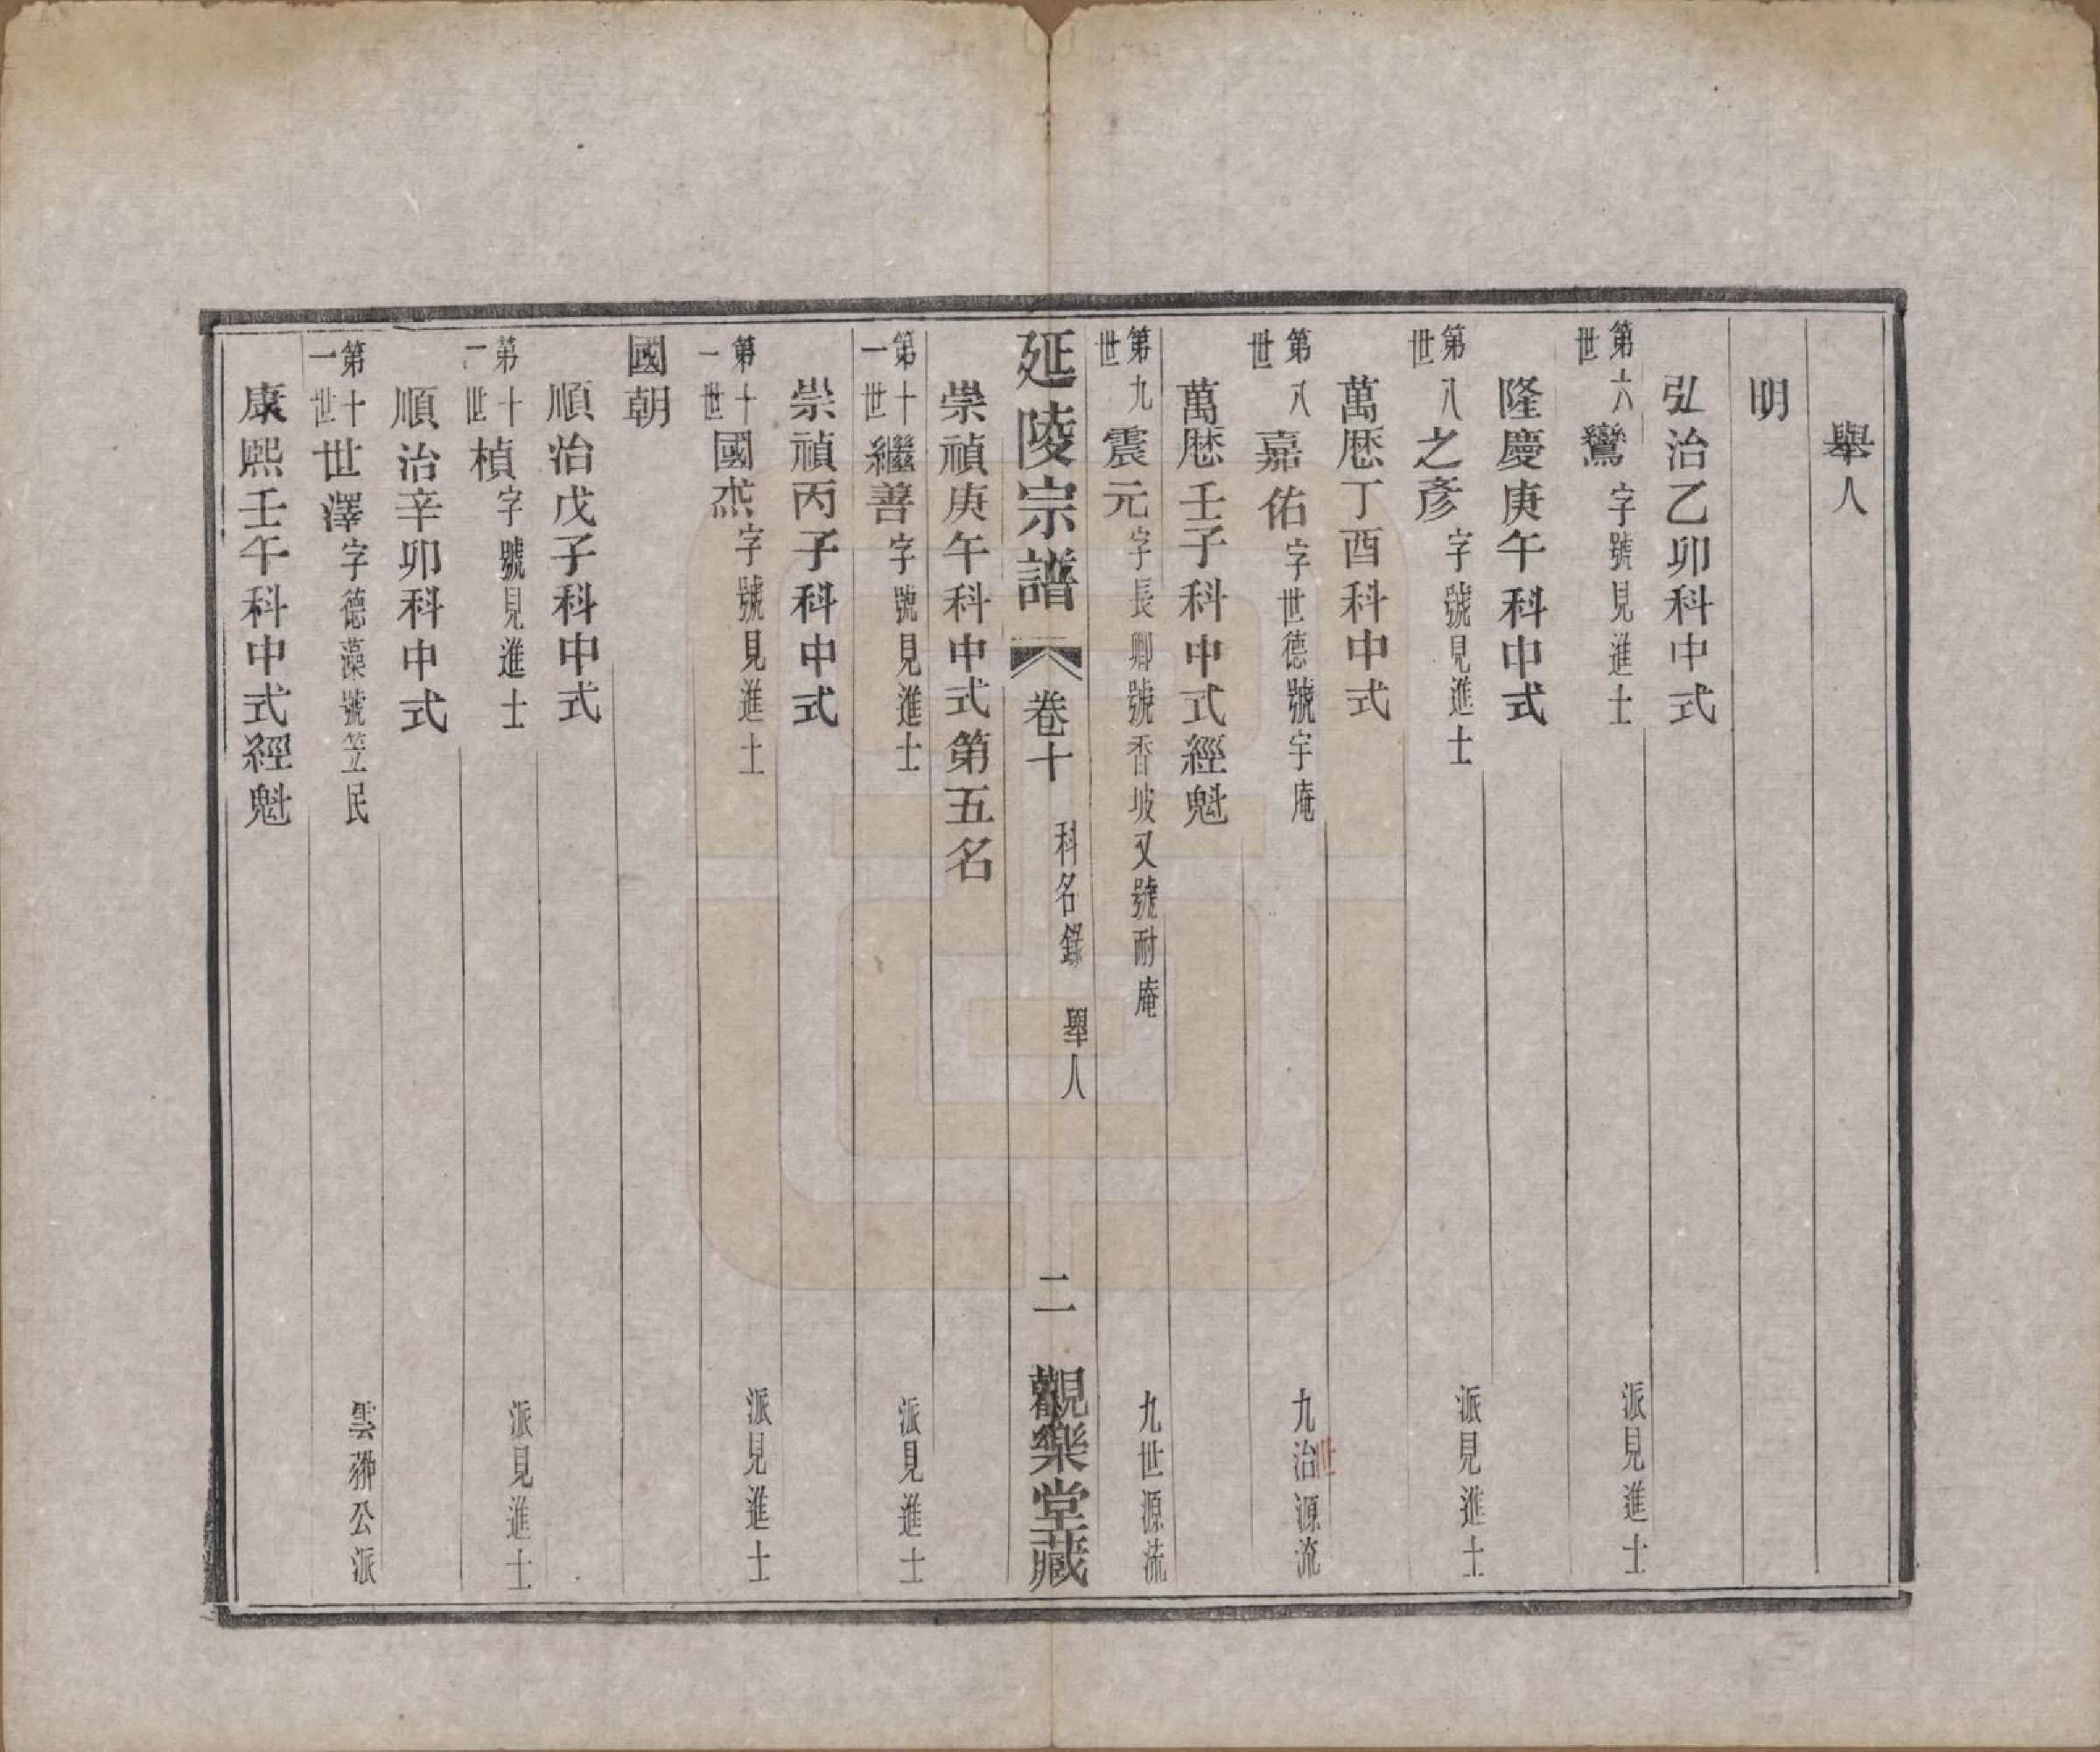 舉人
明
弘治乙卯科中式
第六世鸞字號見進士 派見進士
隆慶庚午科中式
第八世之彥字號見進士 派見進士
萬厯丁酉科中式
第八世嘉佑字世德號宇庵 九治源流
世
萬厯壬子科中式經魁
第九世震元字長卿號香坡又號耐庵 九世源流
延陵宗譜 卷十 科名錄 舉人 二 觀樂堂藏
崇禎庚午科中式第五名
第十一世繼善字號見進士 派見進士
崇禎丙子科中式
第十一世國杰字號見進士 派見進士
國朝
順治戊子科中式
第十二世楨字號見進士 派見進士
順治辛卯科中式
第十一世世澤字德藻號笠民 雲翀公派
康熙壬午科中式經魁